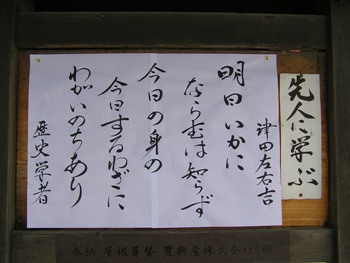 先人に学ぶ・
津田左右吉
明日いかに
ならむは知らず
今日の身の
今日するわざに
わがいのちあり
歴史学者
奉納 屋根葺替 寶興産株式会社殿